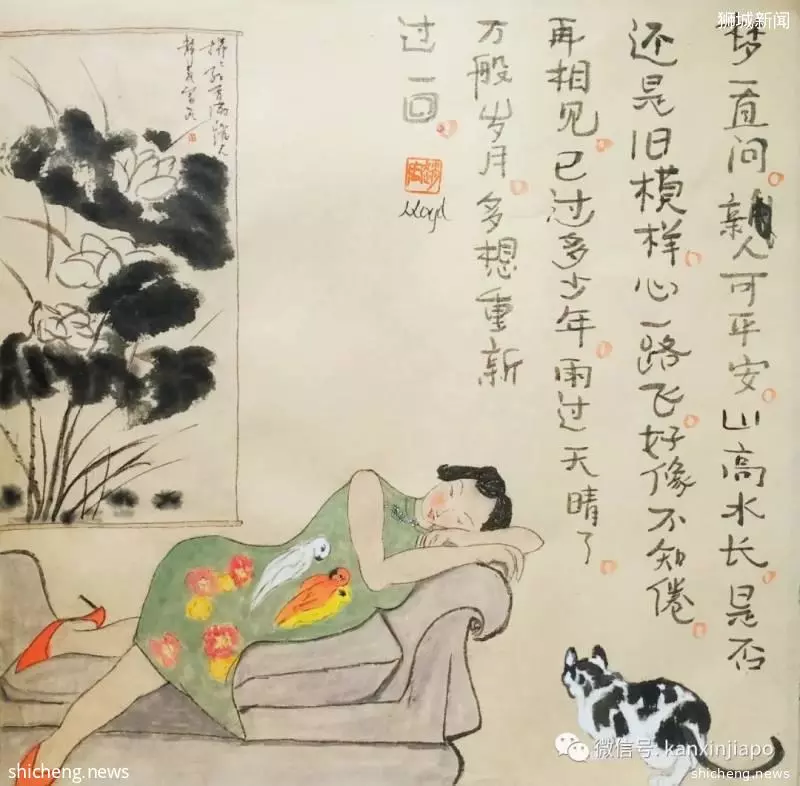 狮城新闻
梦一直问。亲人可平安。山高水长。是否
还是旧模样。心一路飞。好像不知倦。
再相见。已过多少年。雨过天晴了。
万般岁月。多想重新
过一回。
微信号: kanxinjiapo
shicheng.news
shicheng.news